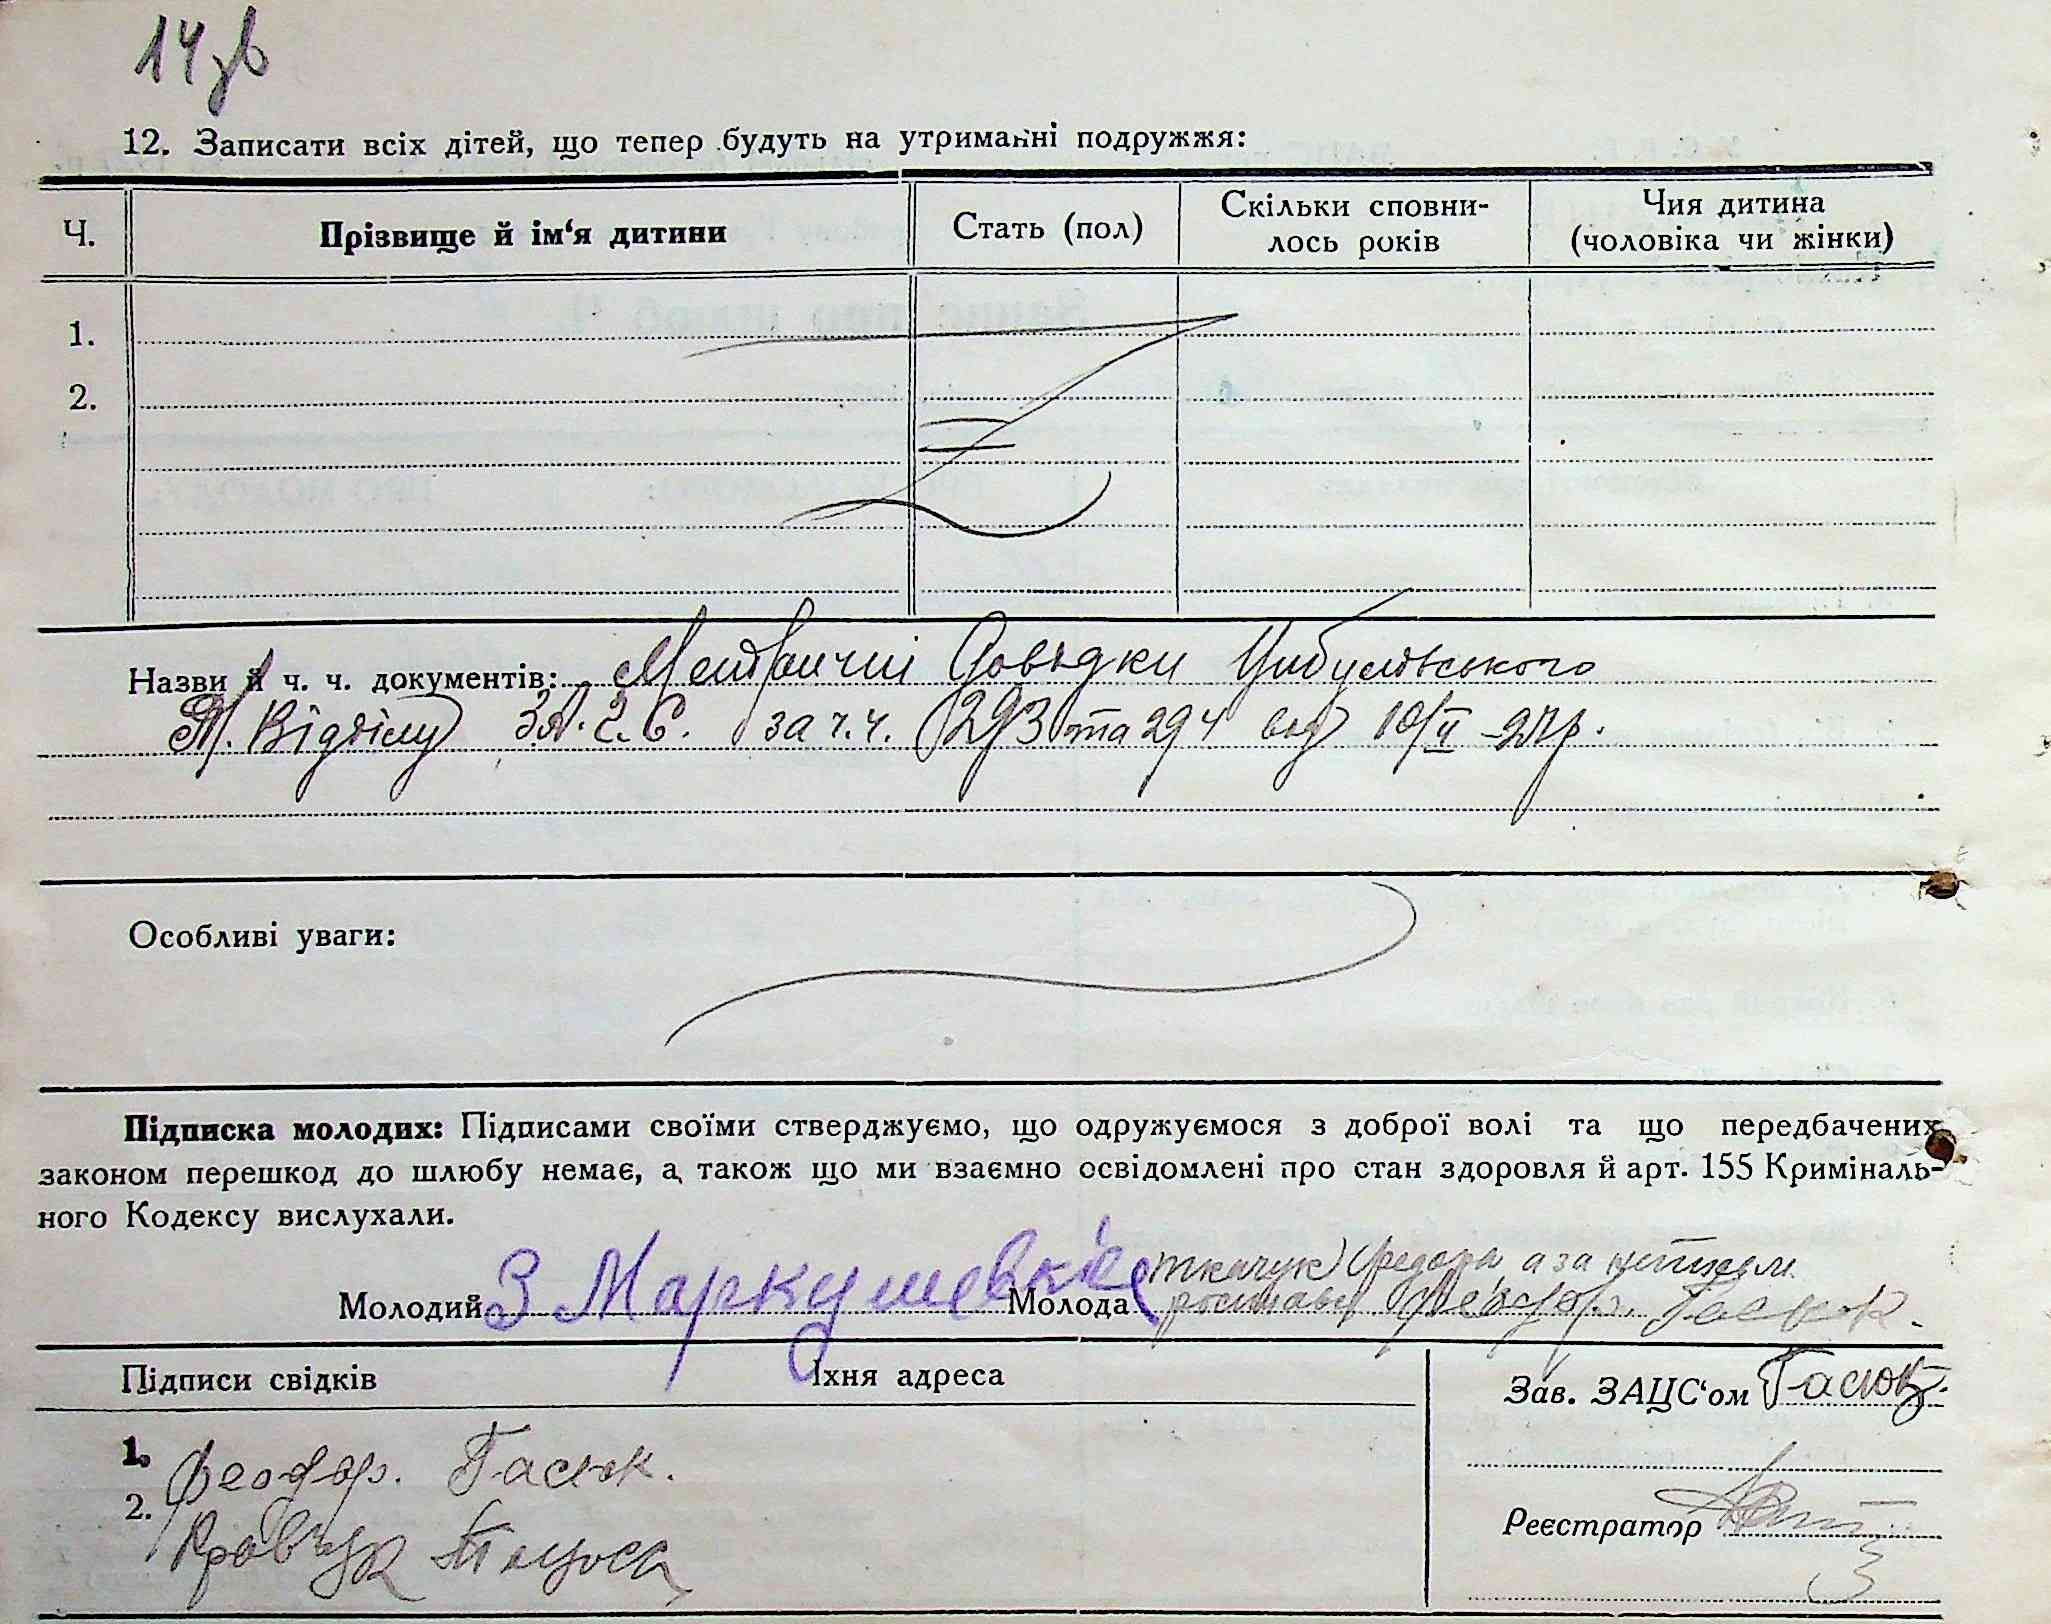 14 зв
12. Записати всіх дітей, що тепер будуть на утриманні подружжя:
Ч. Прізвище й ім‘я дитини Стать (пол) Скільки сповнилось років Чия дитина (чоловіка чи жінки)
1.
2.
Назви й ч. ч. документів: Метричні Довідки Цибулівського
Відділу З.А.Г.С. за ч.ч. 293 та 294 від 10/II-27р.
Особливі уваги:
Підписка молодих: Підписами своїми стверджуємо, що одружуємося з доброї волі та що передбачених
законом перешкод до шлюбу немає, а також що ми взаємно освідомлені про стан здоровля й арт. 155 Криміналь-
ного Кодексу вислухали.
Молодий З Маркушевс Молода Ткачук Федора а за неписм.
Гасюк.
Підписи свідків Їхня адреса Зав. ЗАЦС‘ом Гасюк
1. Феодор. Гасюк.
2. Кравчук
Реєстратор